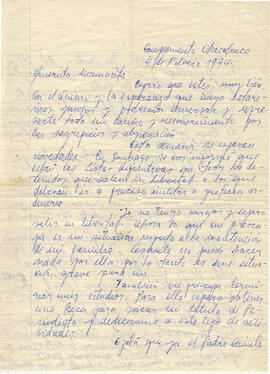 Campamento Chacabuco
4 de Febrero 1974.
Querida Mamacita:
Espero que estés muy bien
de ánimo y la esperanza que luego estare-
mos juntos y podremos conversar y
todo mi cariño y reconocimiento por
tus sacrificios y abnegación.
Esta semana se esperan
novedades. En Santiago se nos informó que
están las listas definitivas con todos los de-
tenidos que salen en libertad o que
deberán ir a proceso militar o justicia or-
dinaria.
Yo no tengo cargos y espero
salir en libertad. Ahora lo que me preocu-
pa es mi situación respecto a la mantención
de mi familia. no puedo hacer
nada por ellos por lo tanto es una situa-
ción grave para mí.
También me preocupa termi-
nar mis estudios. Para ello espero obtener
una Beca para sacar mi título de Pe-
riodista y dedicarme a este tipo de acti-
vidades.
Ojalá que ya el Padre Camilo